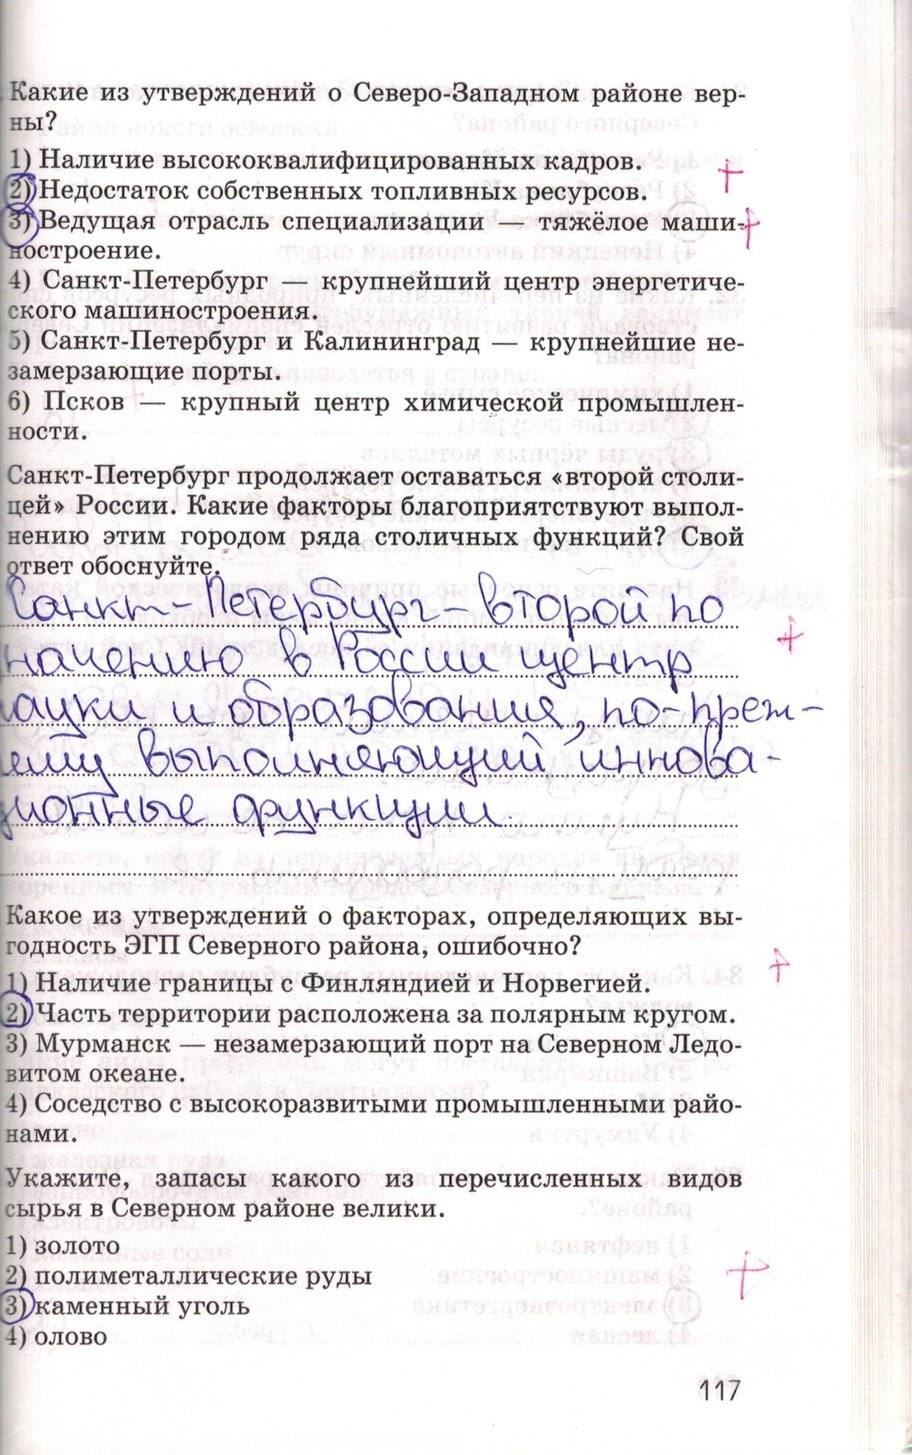 Какие из утверждений о Северо-Западном районе вер-
ны?
1) Наличие высококвалифицированных кадров.
2) Недостаток собственных топливных ресурсов.
3) Ведущая отрасль специализации — тяжёлое маши-
ностроение.
4) Санкт-Петербург — крупнейший центр энергетиче-
ского машиностроения.
5) Санкт-Петербург и Калининград — крупнейшие не-
замерзающие порты.
6) Псков — крупный центр химической промышлен-
ности.
Санкт-Петербург продолжает оставаться «второй столи-
цей» России. Какие факторы благоприятствуют выпол-
нению этим городом ряда столичных функций? Свой
ответ обоснуйте.
Санкт-Петербург – второй по
начению в России центр
ауки и образования, по-преж-
ему выполняющий иннова-
ционные функции.
Какое из утверждений о факторах, определяющих вы-
годность ЭГП Северного района, ошибочно?
1) Наличие границы с Финляндией и Норвегией.
2) Часть территории расположена за полярным кругом.
3) Мурманск — незамерзающий порт на Северном Ледо-
витом океане.
4) Соседство с высокоразвитыми промышленными райо-
нами.
Укажите, запасы какого из перечисленных видов
сырья в Северном районе велики.
1) золото
2) полиметаллические руды
3) каменный уголь
4) олово
117